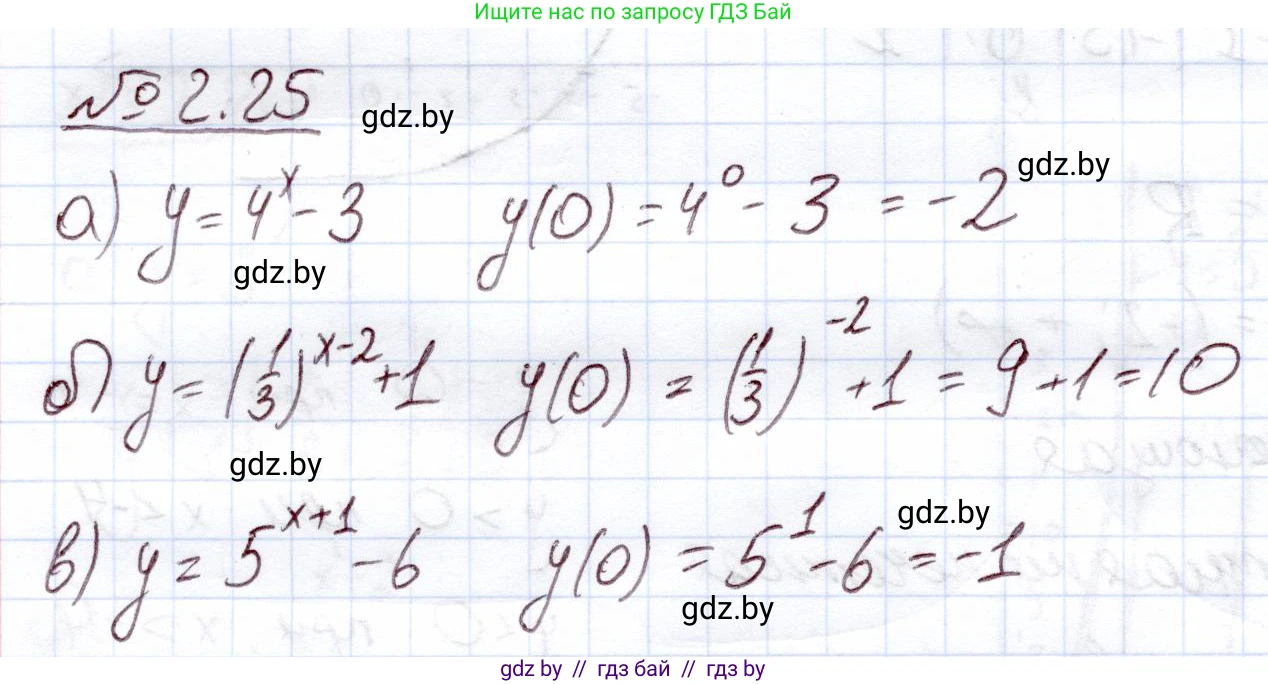 Ищите нас по запросу ГДЗ Бай
№ 2.25 gdz.by
а) y = 4^x - 3 y(0) = 4^0 - 3 = -2 gdz.by
gdz.by
б) y = (1/3)^(x-2) + 1 y(0) = (1/3)^(-2) + 1 = 9 + 1 = 10
gdz.by
в) y = 5^(x+1) - 6 y(0) = 5^1 - 6 = -1 gdz.by
gdz.by
gdz by // гдз бай // гдз by